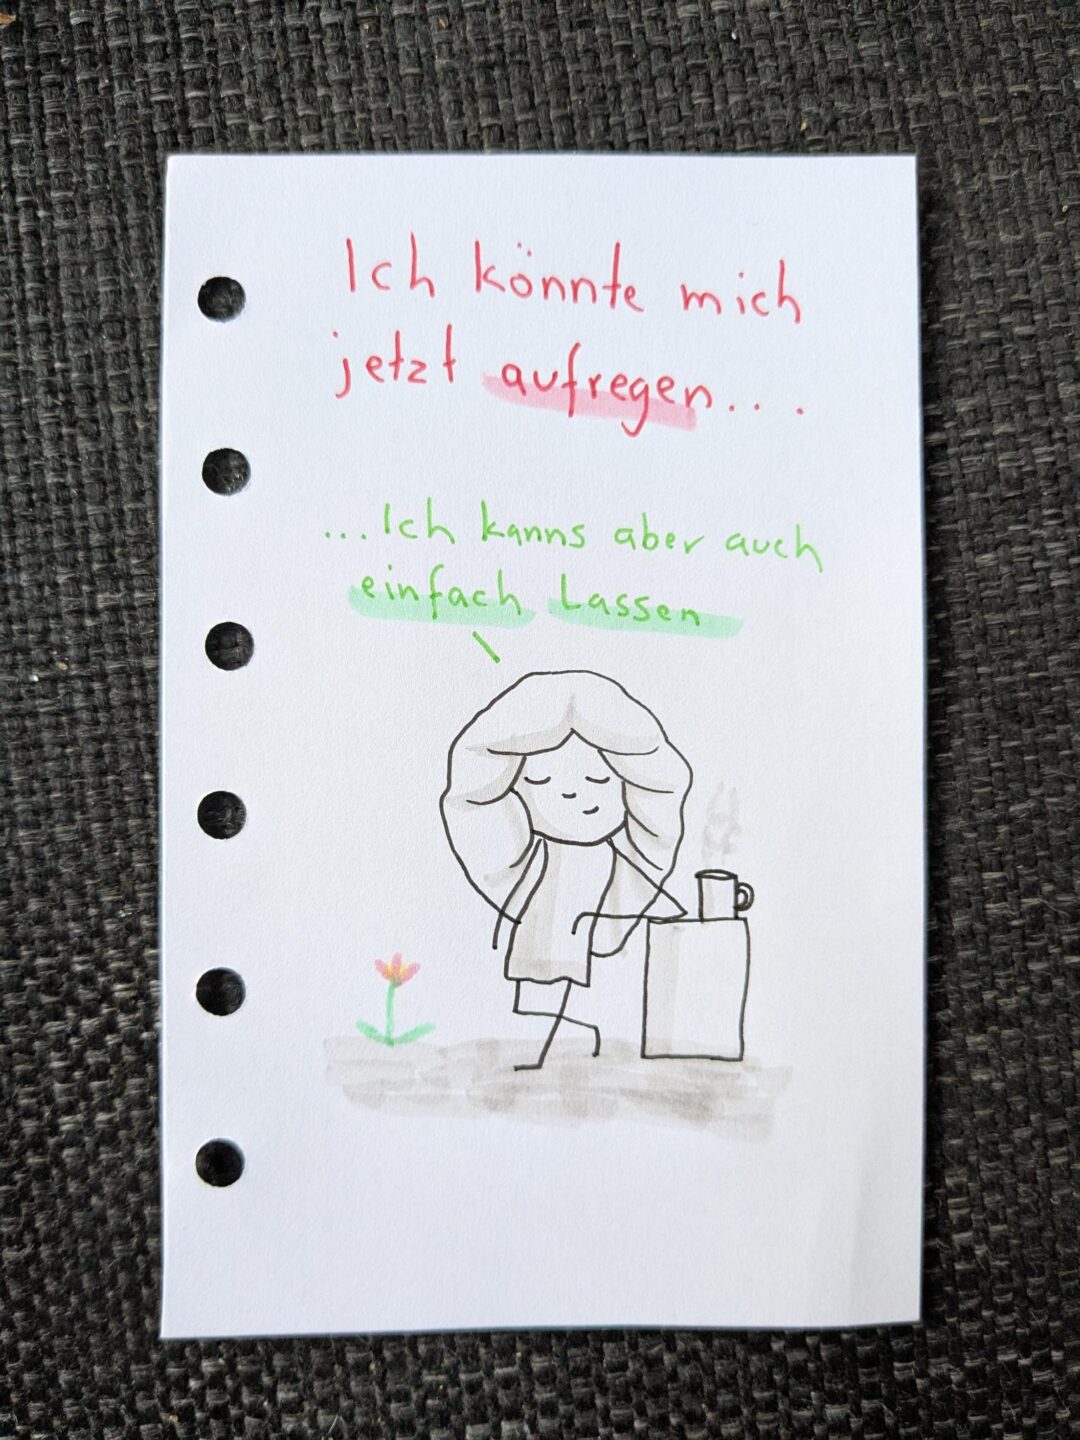 Ich könnte mich
jetzt aufregen....
...Ich kanns aber auch
einfach Lassen